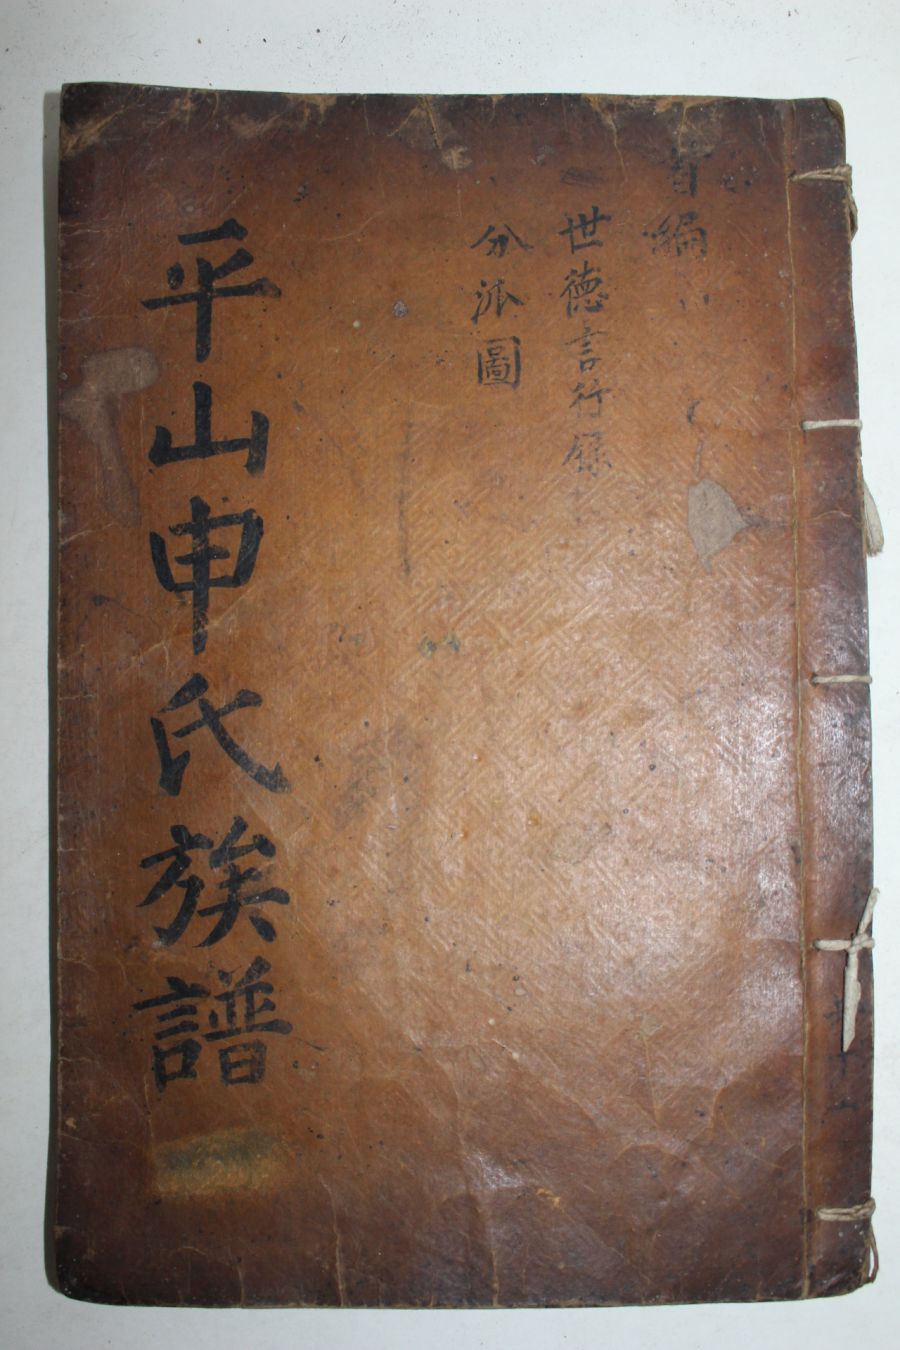 首編
世德言行錄
分派圖
平山申氏族譜